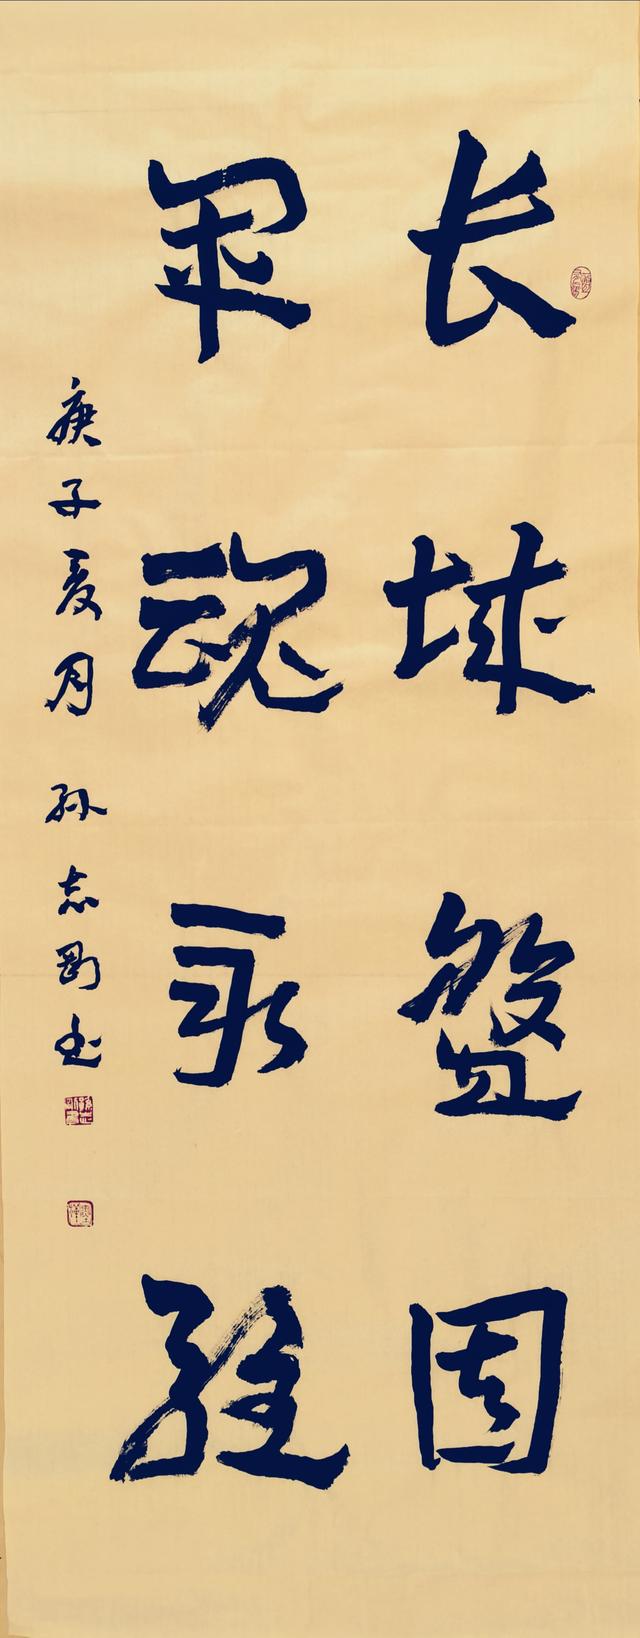 长城盤固
军魂永驻
庚子夏月 孙志刚书